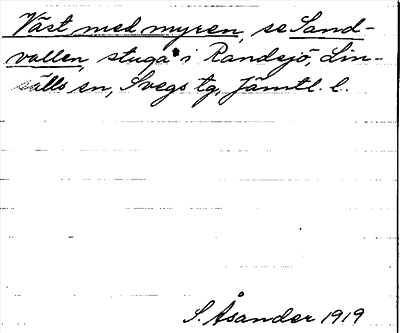 Väst med myren, se Sand-
vallen, stuga i Randsjö, Lin-
sälls sn, Svegs tg, Jämtl. l.
S. Åsander 1919